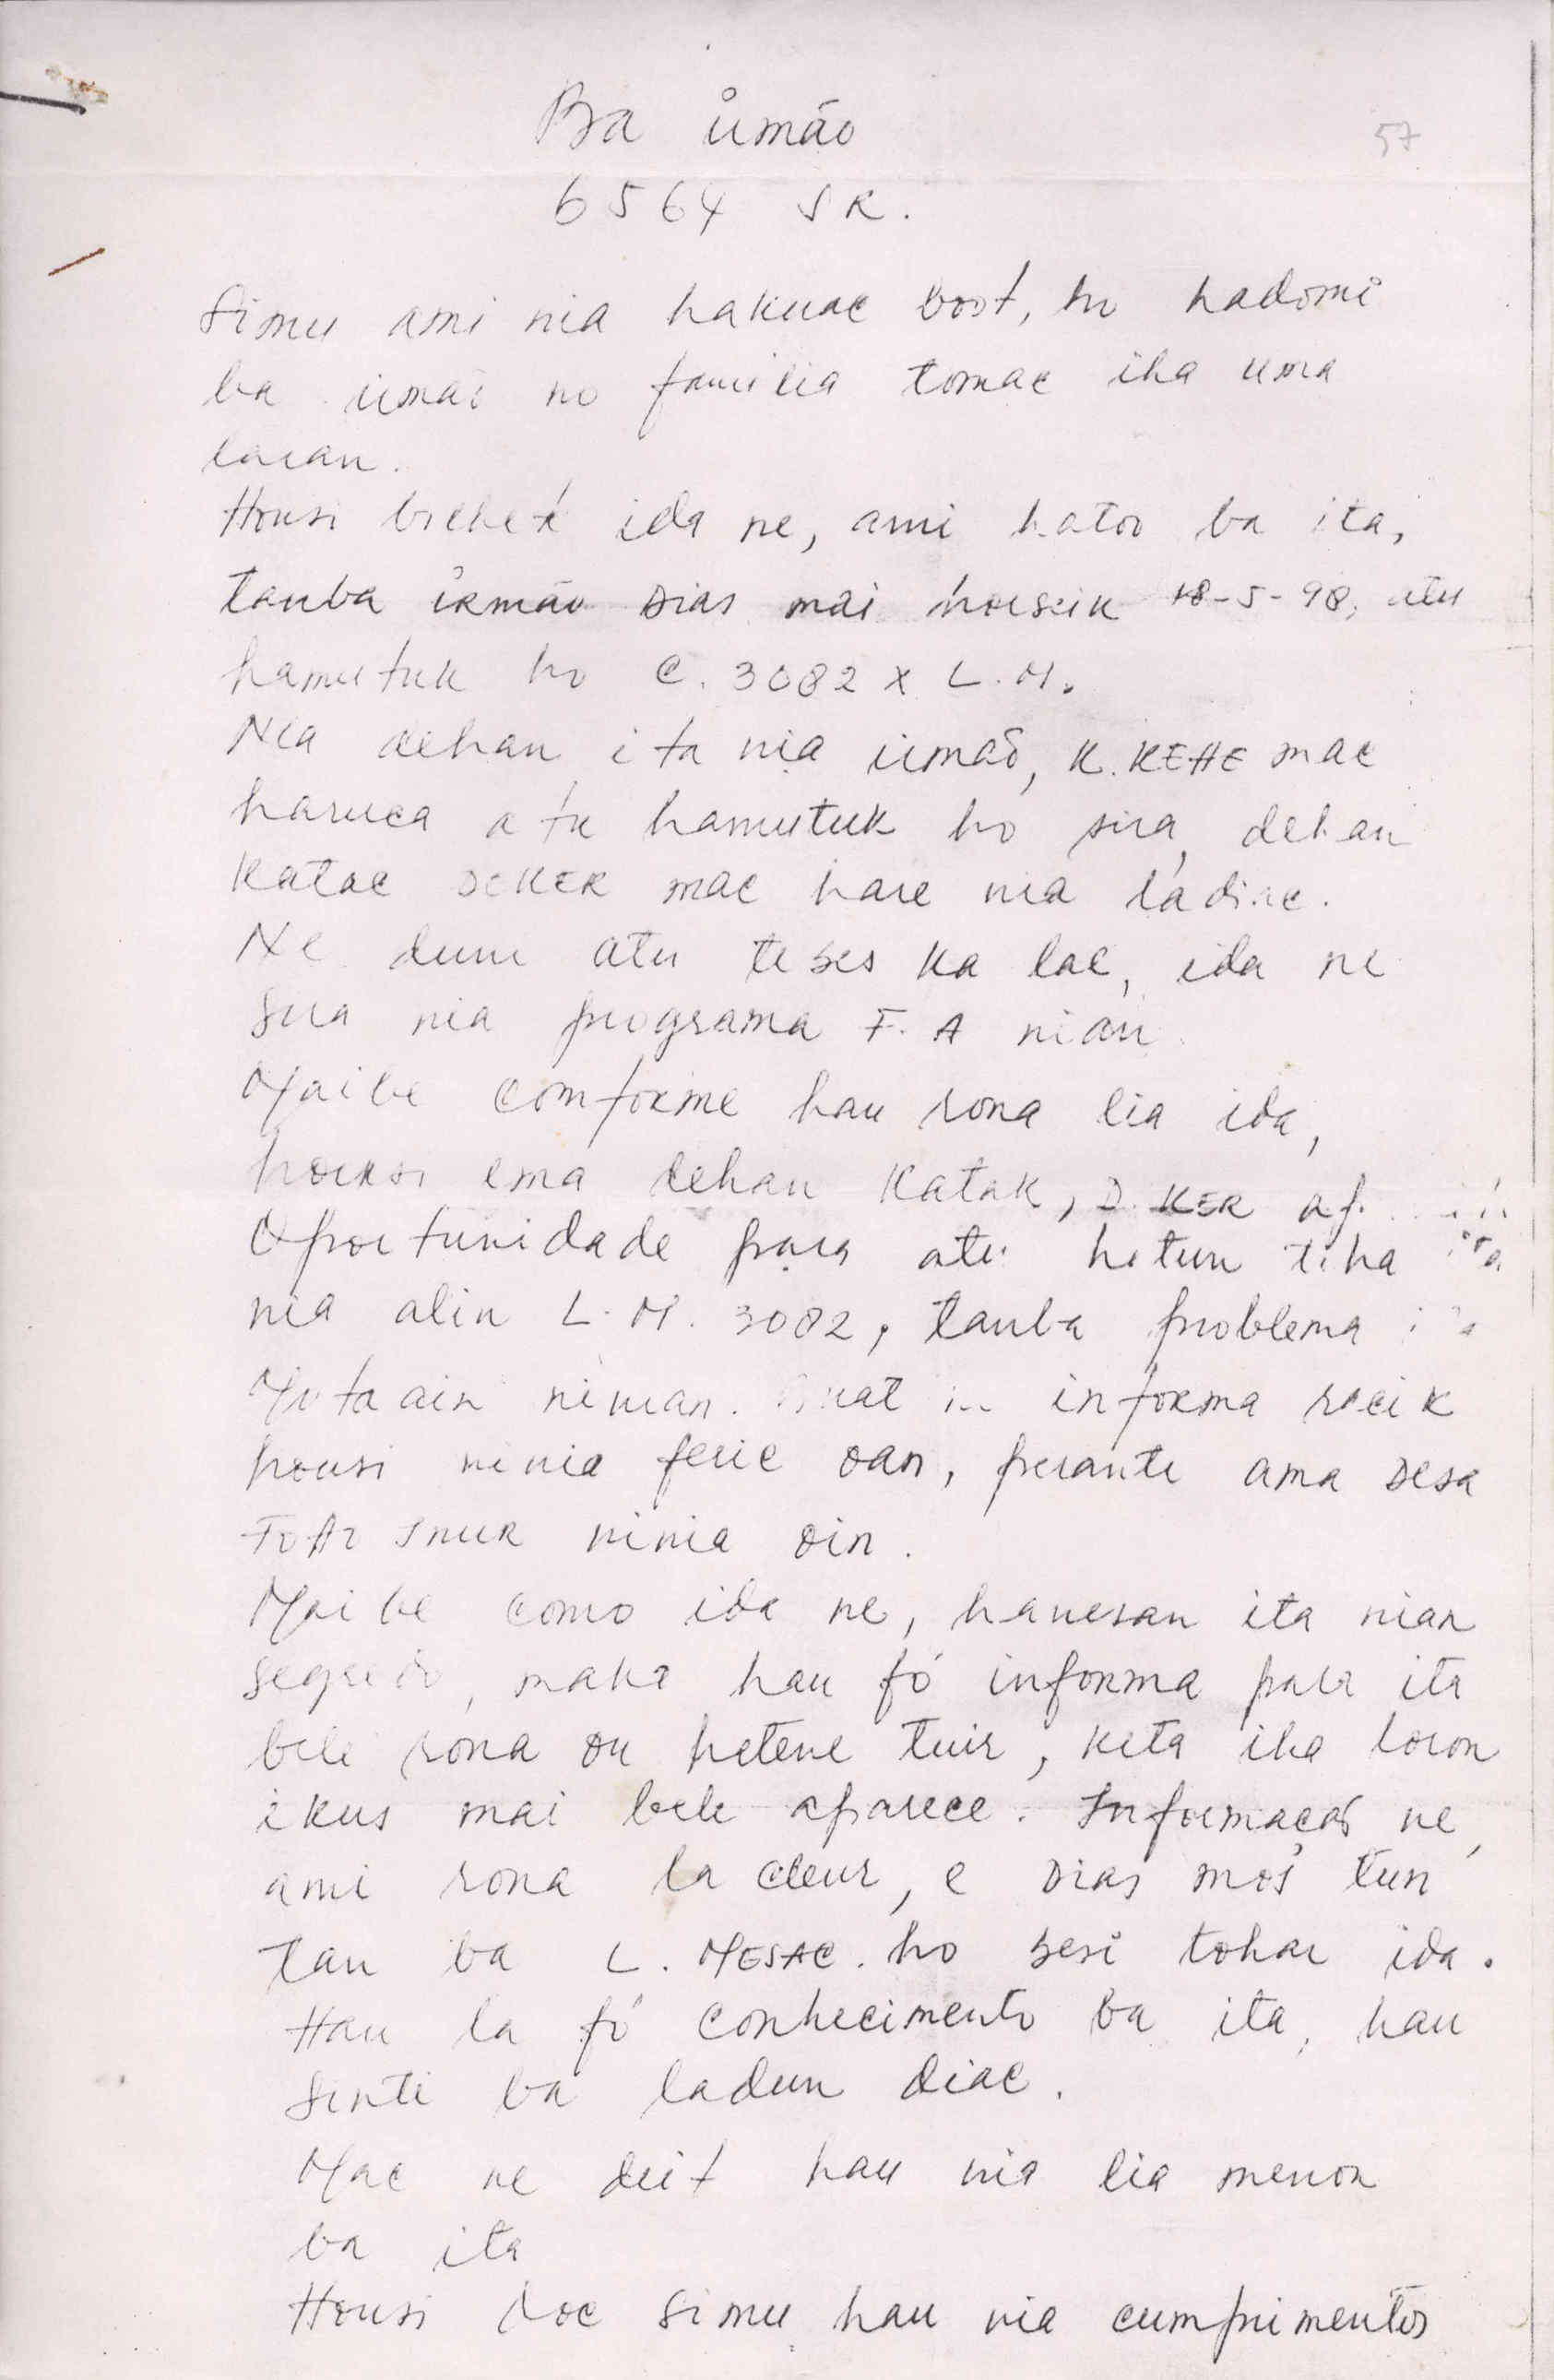 Ba irmão
57
6564 SR.
Simu ami nia hakuac boot, ho hadomi
ba irmão no familia tomac iha uma
laran.
Housi bilhet ida ne, ami hatoo ba ita,
tanba irmão Dias mai horseik 18-5-98, atu
hamutuk ho C. 3082 x L.M.
Nia dehan ita nia irmão, K. KEHE mac
haruca atu hamutuk ho sira, dehan
Katac DEKER mac hare nia ladiac.
Ne duni atu tebes ka lae, ida ne
sira nia programa F. A nian.
Maibe comforme hau rona lia ida,
housi ema dehan Katak, D. KER
Oportunidade para atu hetun tiha ita
nia alin L. M. 3082, tanba problema
Mota ain ninian. informa rocik
housi ninia feric oan, perante ama Desa
ninia oin.
Maibe como ida ne, hanesan ita nian
segredo, maka hau fó informa para ita
bele rona ou hetene tuir, keta iha loron
ikus mai bele aparece. Informação ne,
ami rona la cleur, e Dias mos tun
tan ba L. MESAC. ho besi tohar ida.
Hau la fó conhecimento ba ita, hau
sinti ba ladun diac.
Mac ne deit hau nia lia menon
ba ita
Housi doc simu hau nia cumprimentos